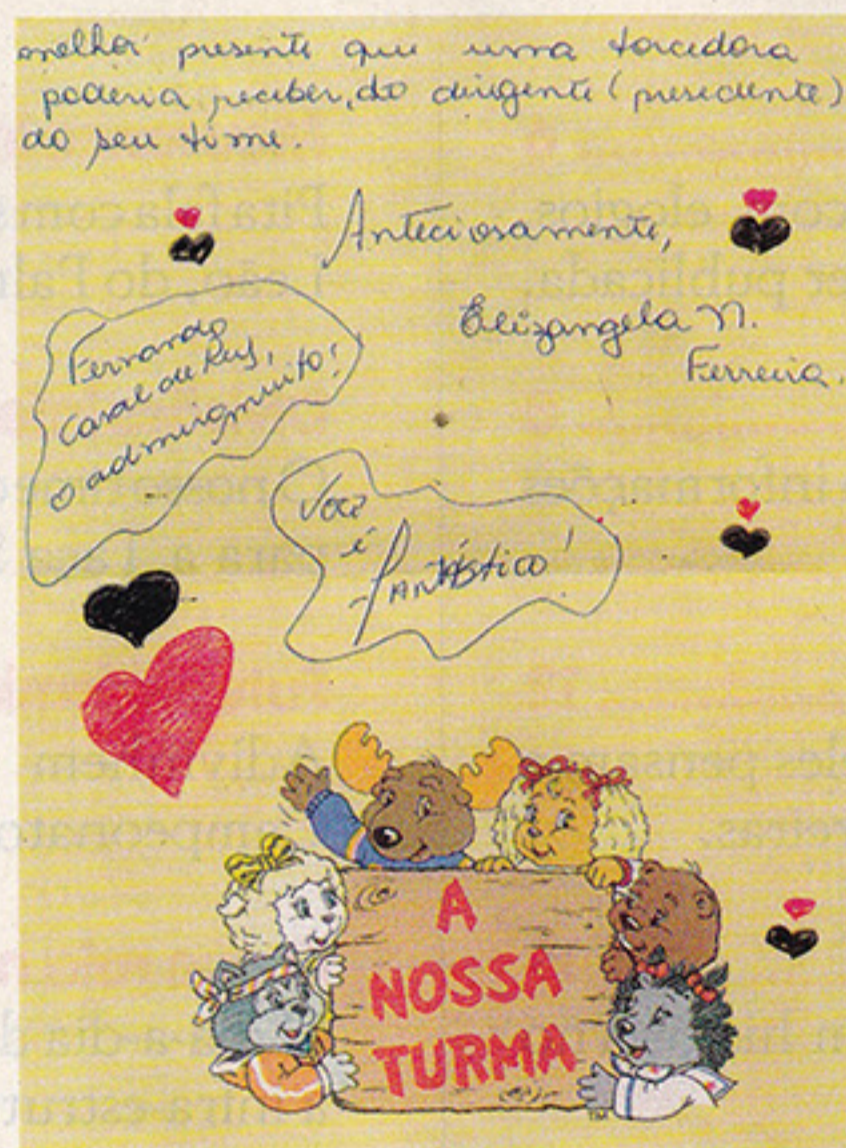 melhor presente que uma torcedora
poderia receber, do dirigente (presidente)
do seu time.
Anteciosamente,
Elizangela N.
Ferreira.
Fernando
Casal de Rey,
o admiro muito!
Você
é
FANTÁStico!
A
NOSSA
TURMA